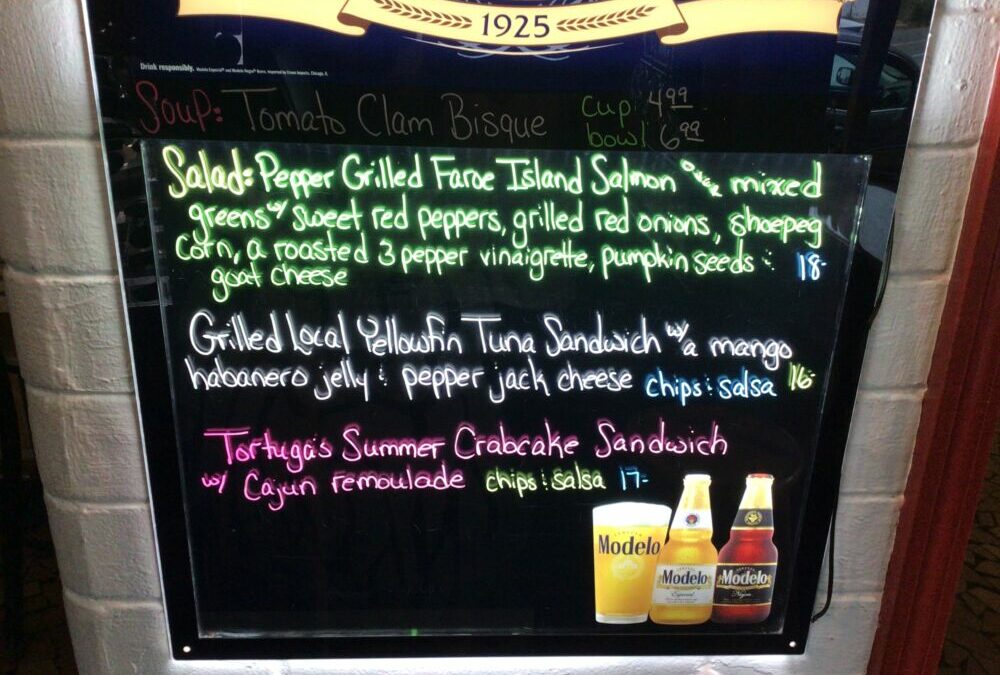 1925
Drink responsibly.
Soup: Tomato Clam Bisque cup 4.99
bowl 6.99
Salad: Pepper Grilled Faroe Island Salmon over mixed
greens w/ sweet red peppers, grilled red onions, shoepeg
corn, a roasted 3 pepper vinaigrette, pumpkin seeds & 18-
goat cheese
Grilled Local Yellowfin Tuna Sandwich w/ a mango
habanero jelly & pepper jack cheese chips & salsa 16-
Tortuga's Summer Crabcake Sandwich
w/ Cajun remoulade chips & salsa 17-
Modelo
Modelo
Especial
Modelo
Negra